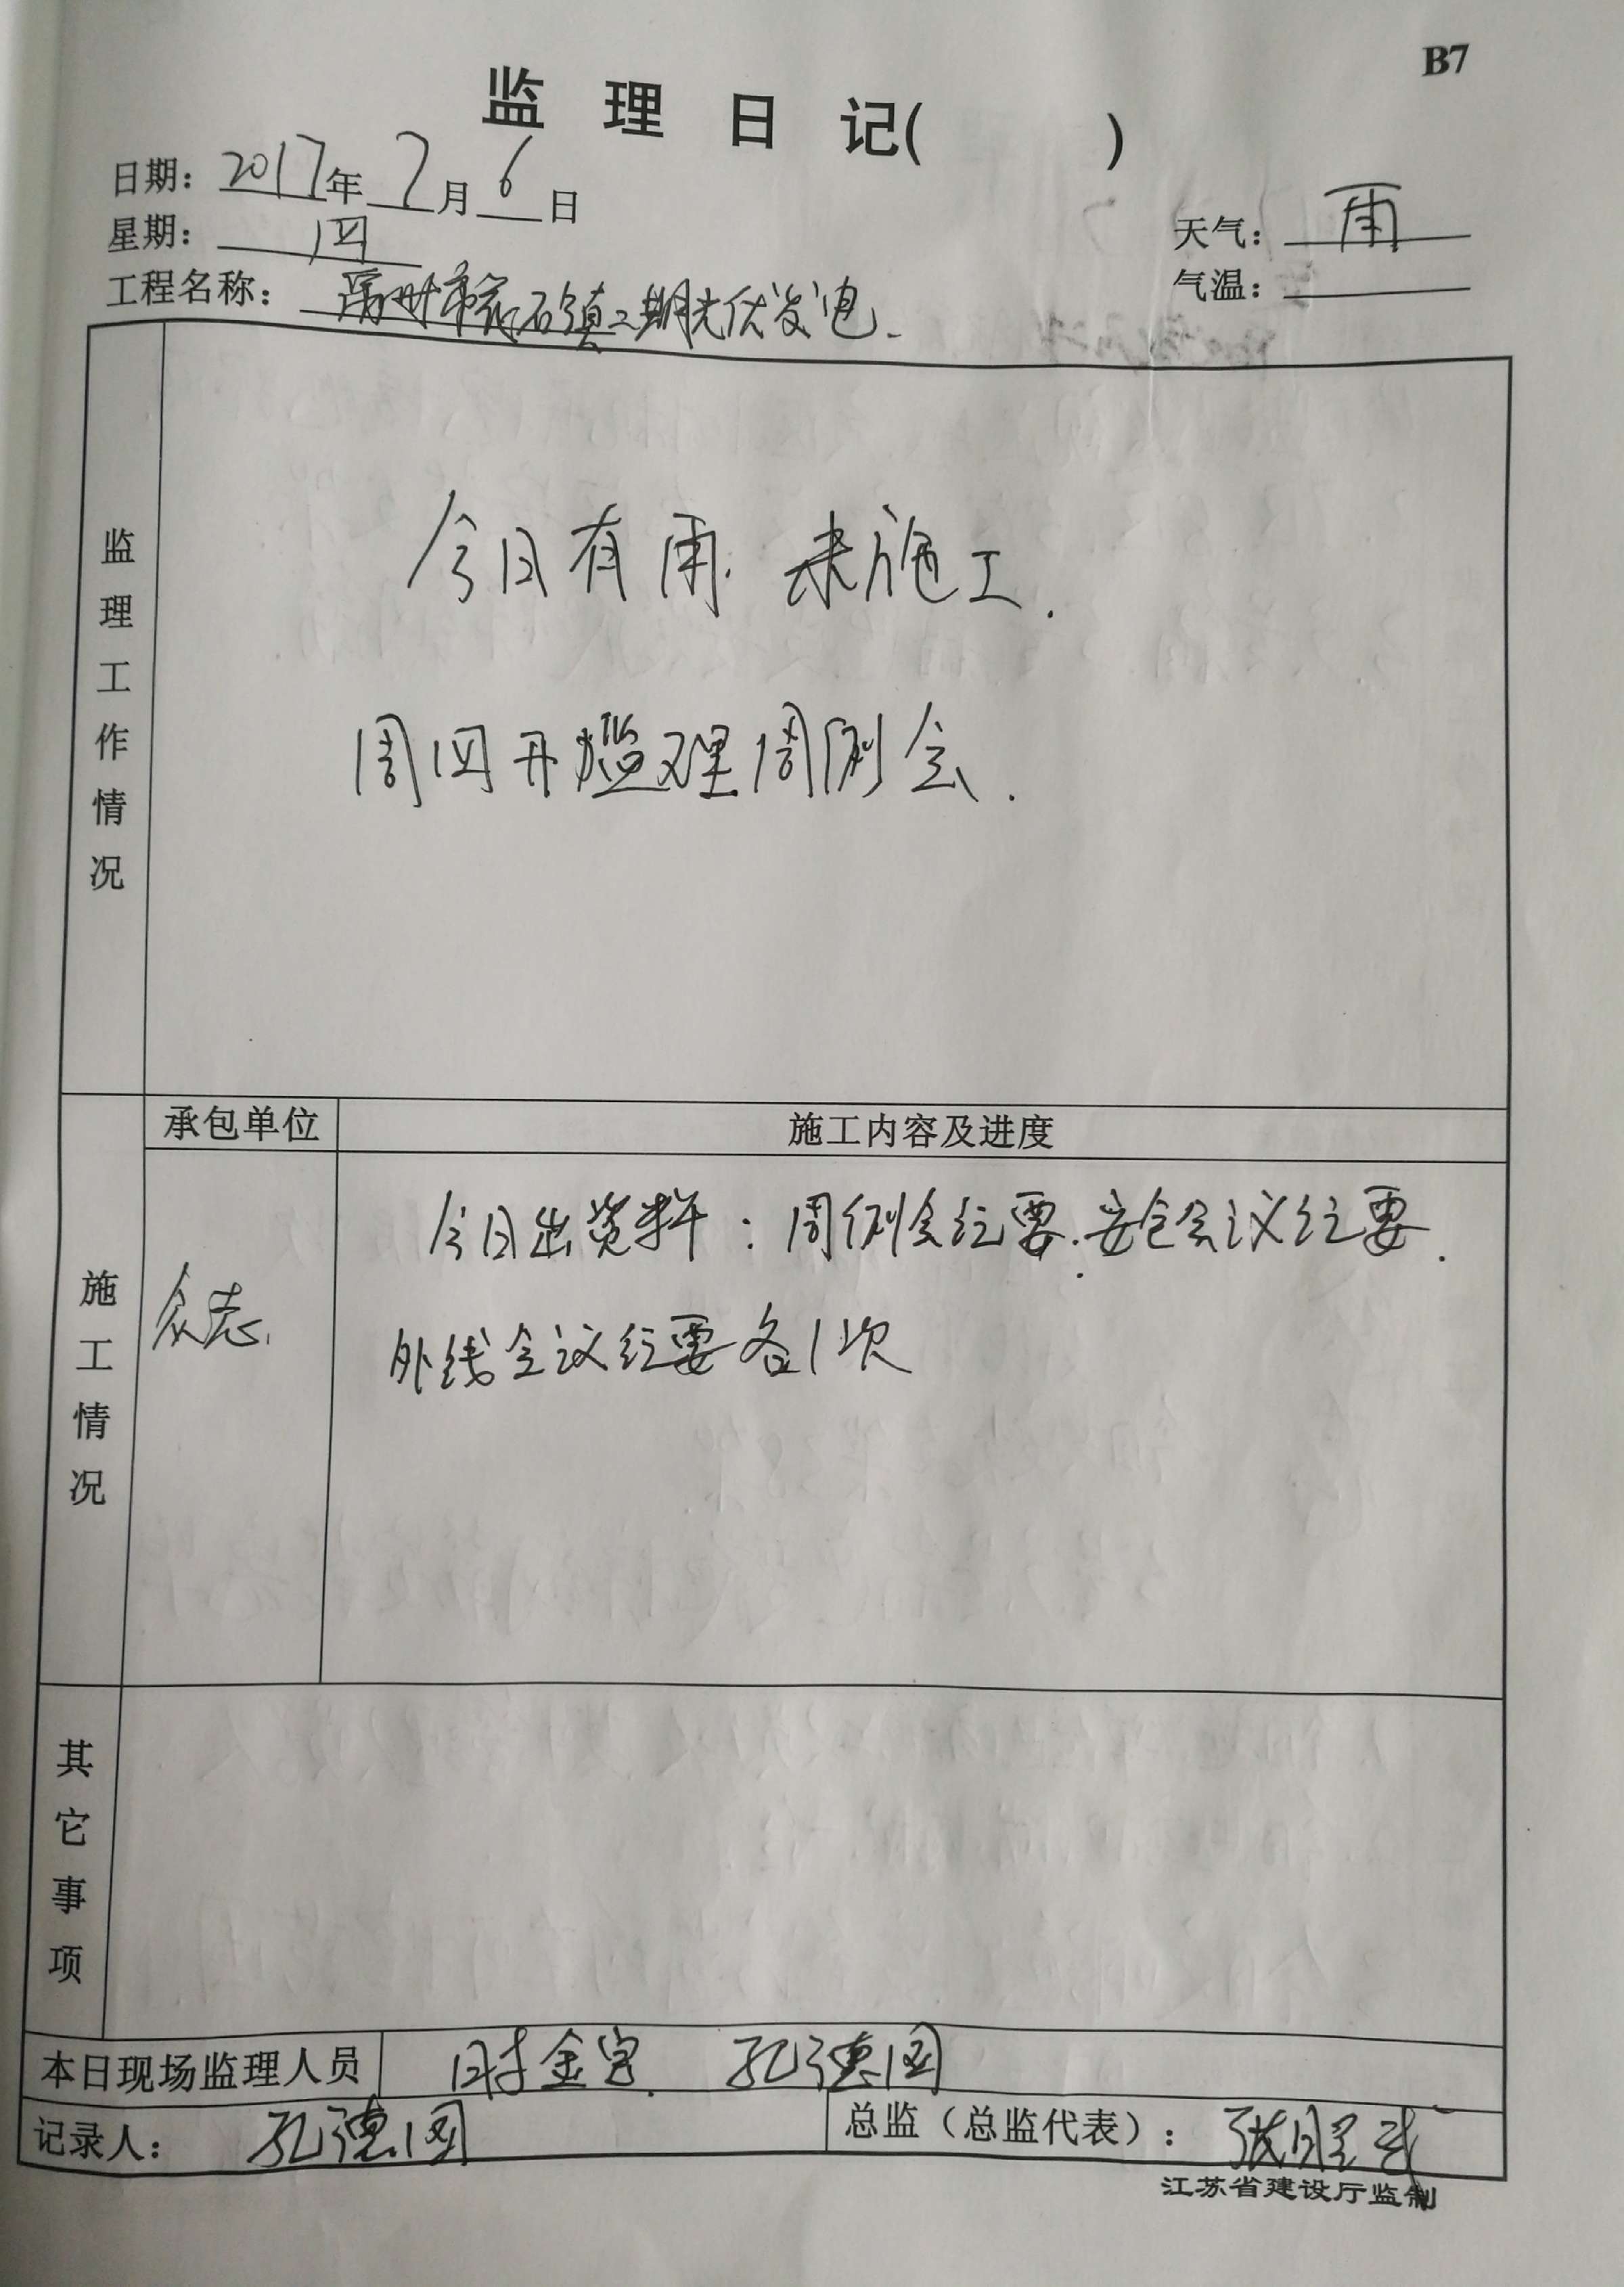 B7
监理日记(    )
日期：2017年7月6日
星期：四
天气：雨
气温：
工程名称：禹州市花石镇二期光伏发电
监理工作情况
今日有雨.未施工.
周四开监理周例会.
施工情况
承包单位
施工内容及进度
众志.
今日出资料：周例会纪要.安全会议纪要.
外线会议纪要各1次
其它事项
本日现场监理人员
时金宝. 孔德国
记录人：孔德国
总监（总监代表）：张
江苏省建设厅监制